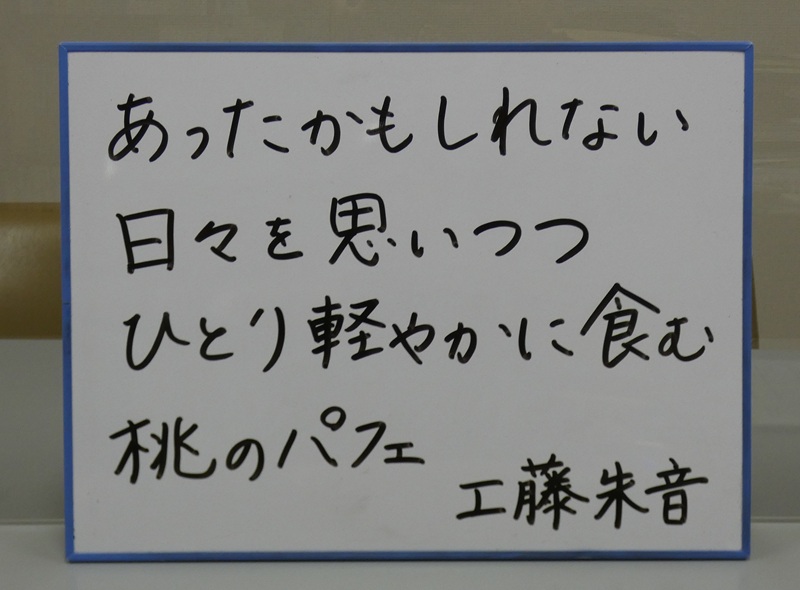 あったかもしれない
日々を思いつつ
ひとり軽やかに食む
桃のパフェ
工藤朱音